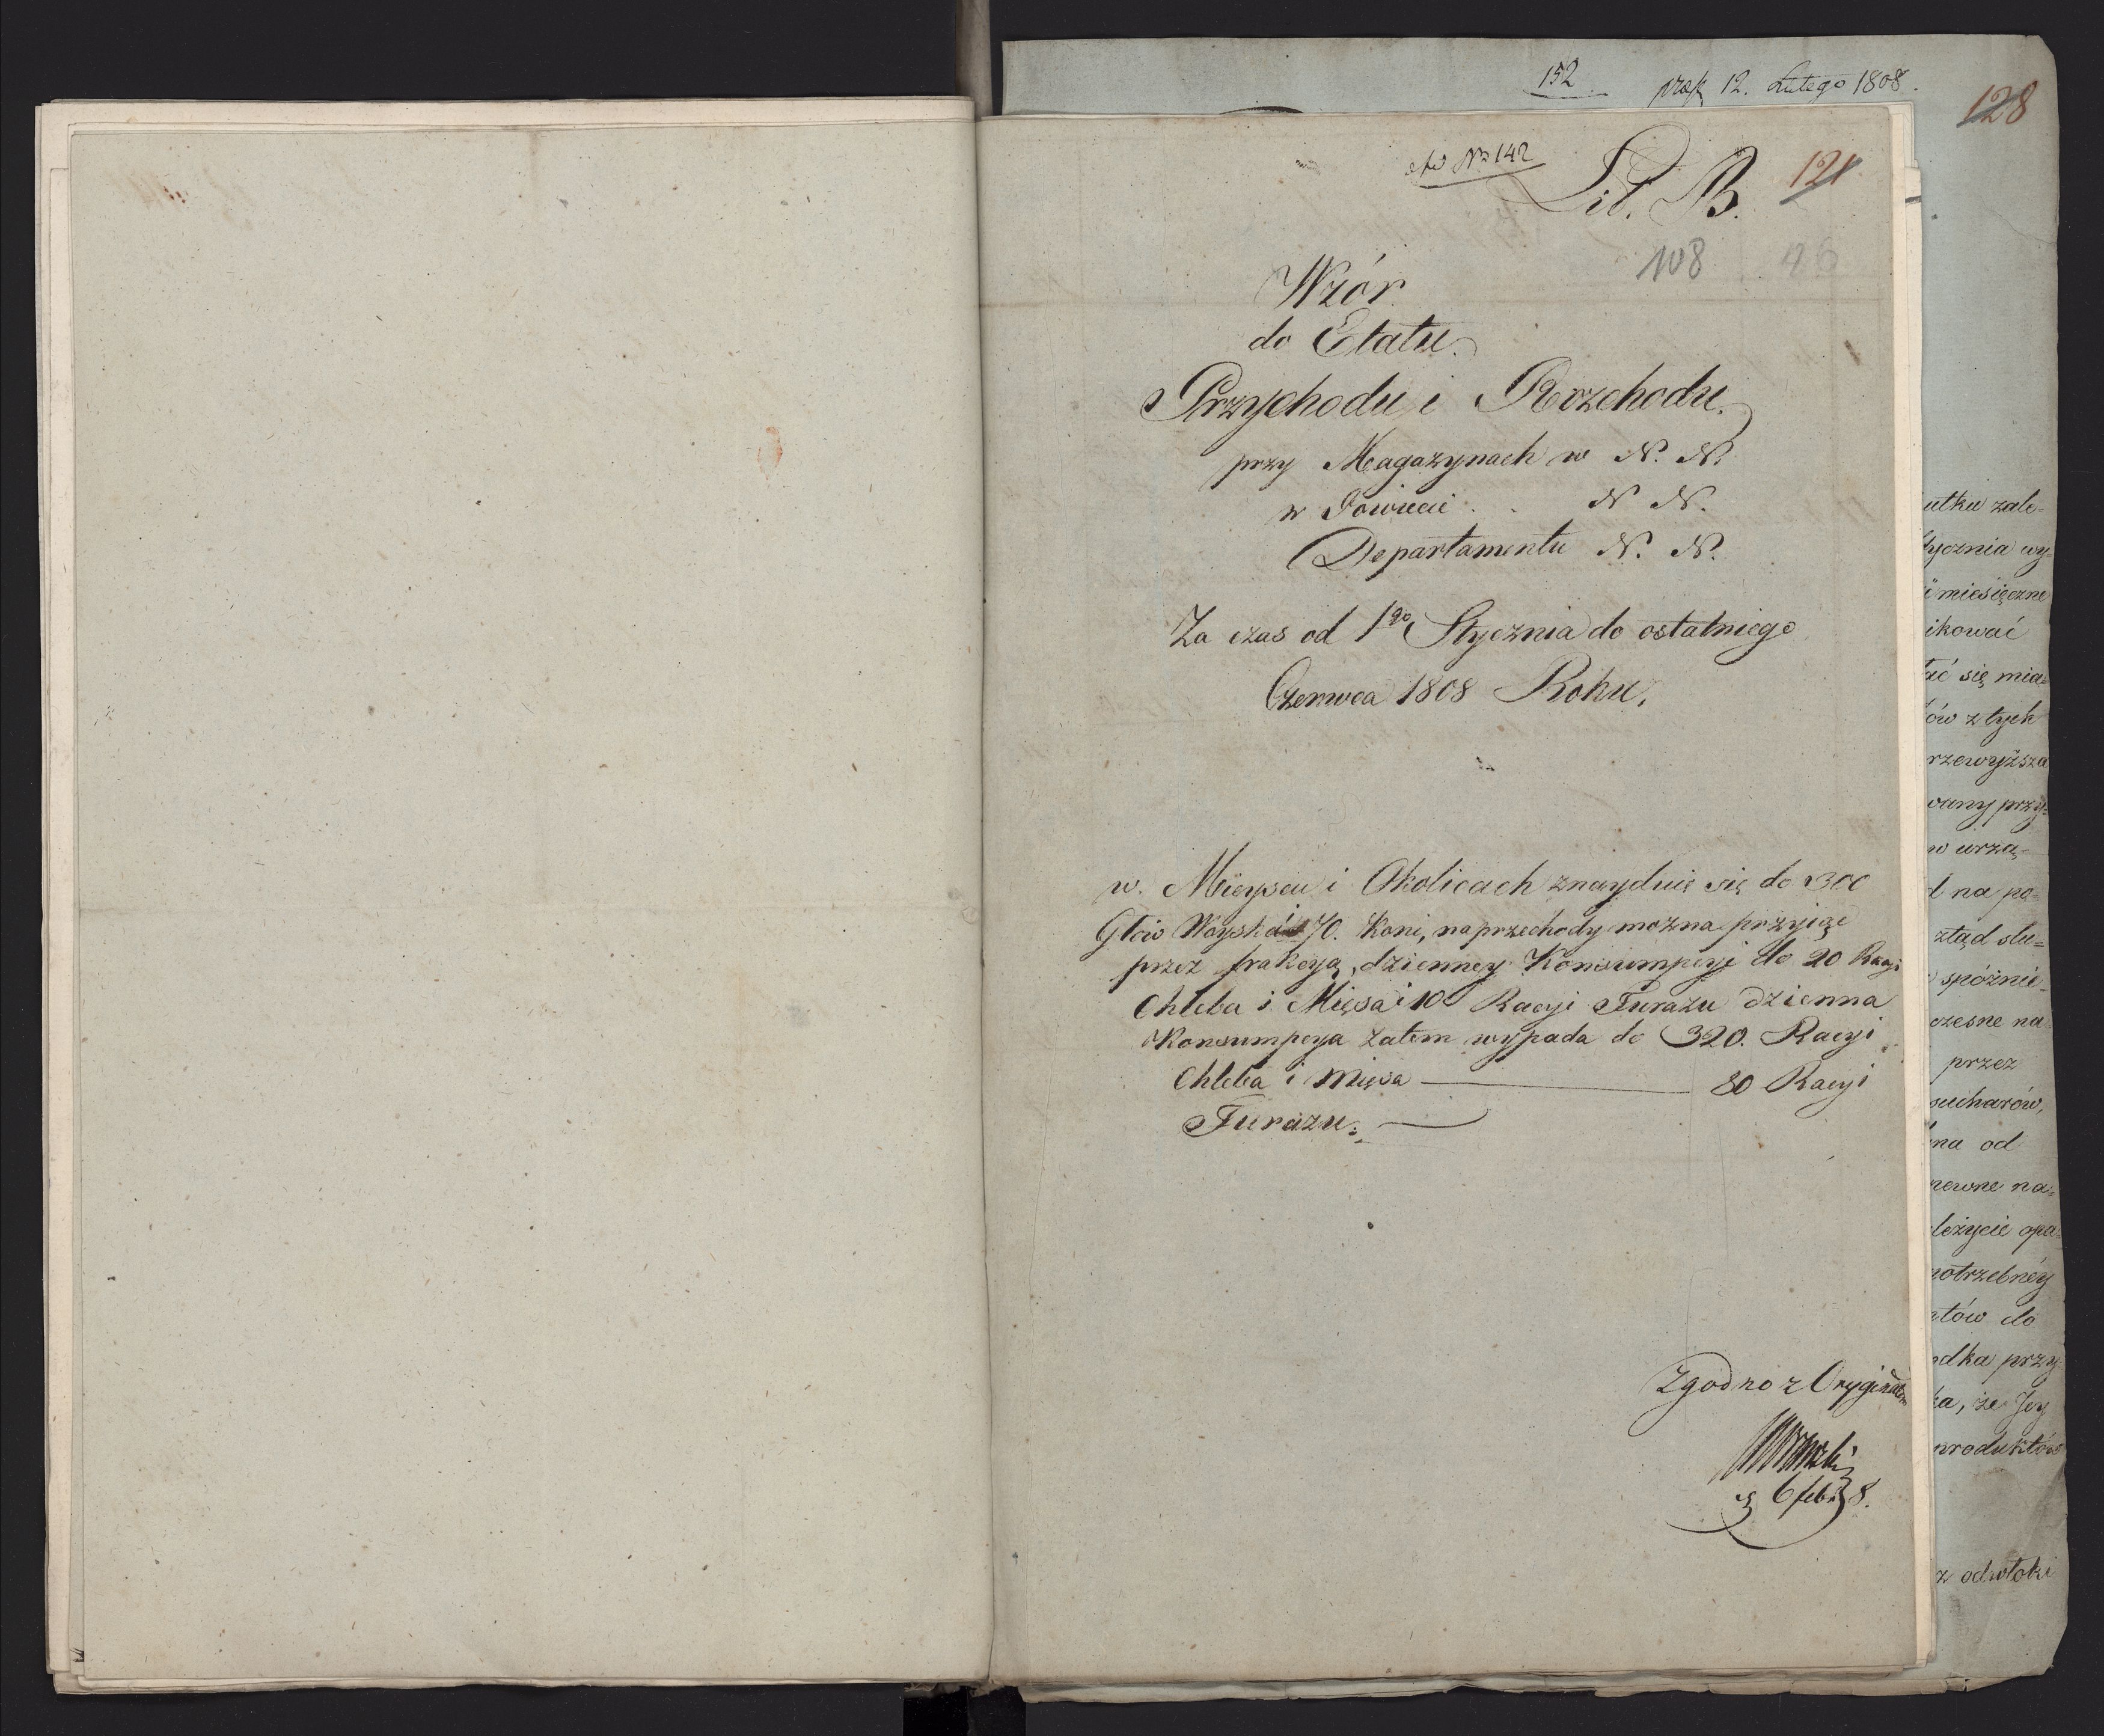 152
12. Lutego 1808.
128
ad No 142
Lit. B.
121
108
Wzór
do Etatu
Przychodu i Rozchodu
przy Magazynach w N. N.
w Powiecie . . N N.
Departamentu N. N.
Za czas od 1go Stycznia do ostatniego
Czerwca 1808 Roku.
w. Mieyscu i Okolicach znayduie się do 300
Głów Woyska i 70. Koni, na przechody można przyiąć
przez frakcyą, dzienney Konsumpcyi do 20 Racyi
Chleba i Mięsa i 10 Racyi Furażu dzienna
Konsumpcya zatem wypada do 320. Racyi
Chleba i Mięsa 80 Racyi
Furażu.
Zgodno z Oryginałem
6 febr 8.
utku zale-
tycznia wy-
miesięczne
ikować
ać się mia-
ów z tych
rzewyższa
wany przy-
w urzą-
d na po-
ztąd słu-
spóźnie-
czesne na
przez
sucharów,
na od
pewne na-
leżycie opa-
potrzebney
tów do
odka przy
ka, że Jey
produktów
z odwłoki